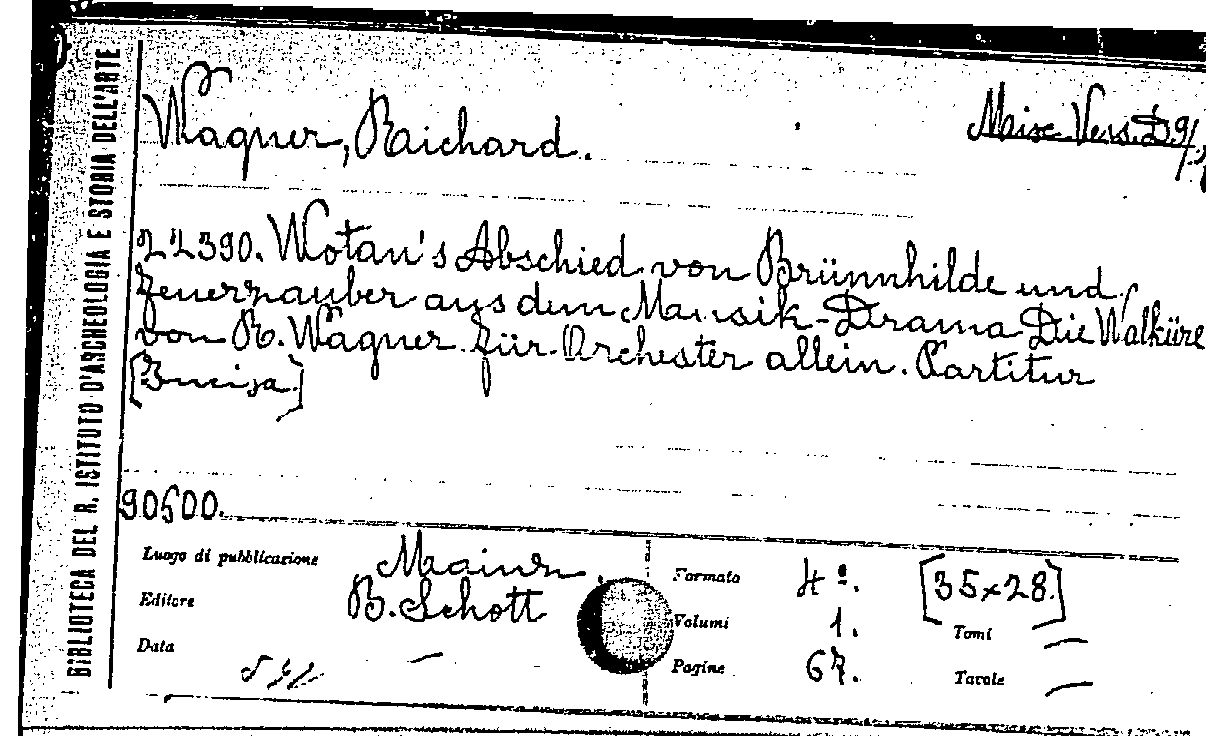 BIBLIOTECA DEL R. ISTITUTO D'ARCHEOLOGIA E STORIA DELL'ARTE
Wagner, Raichard.
Misc. Vers. D 9/
22390. Wotan's Abschied von Brünnhilde und
Feuerzauber aus dem Mausik-Drama Die Walküre
von R. Wagner für Orchester allein. Partitur
[Incisa.]
90500.
Luogo di pubblicazione Mainz
Editore B. Schott
Data —
Formato 4º. [35×28.]
Volumi 1. Tomi —
Pagine 67. Tavole —